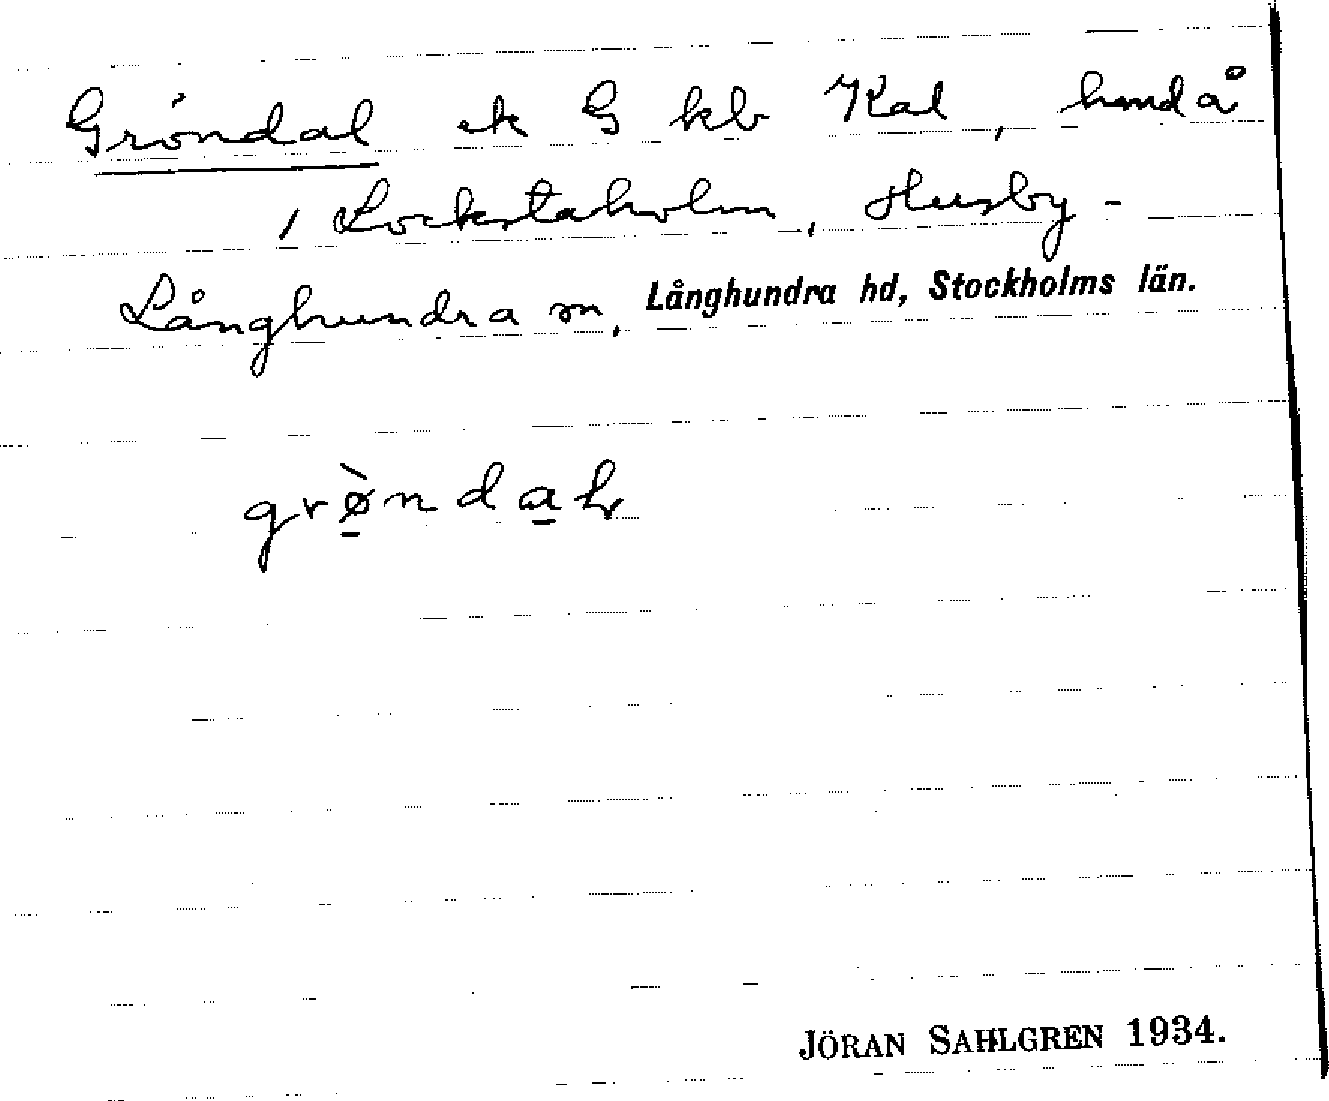 Gröndal ek G kb Kal, hmdå
i Lockstaholm, Husby-
Långhundra sn, Långhundra hd, Stockholms län.
grø̀ndal
JÖRAN SAHLGREN 1934.